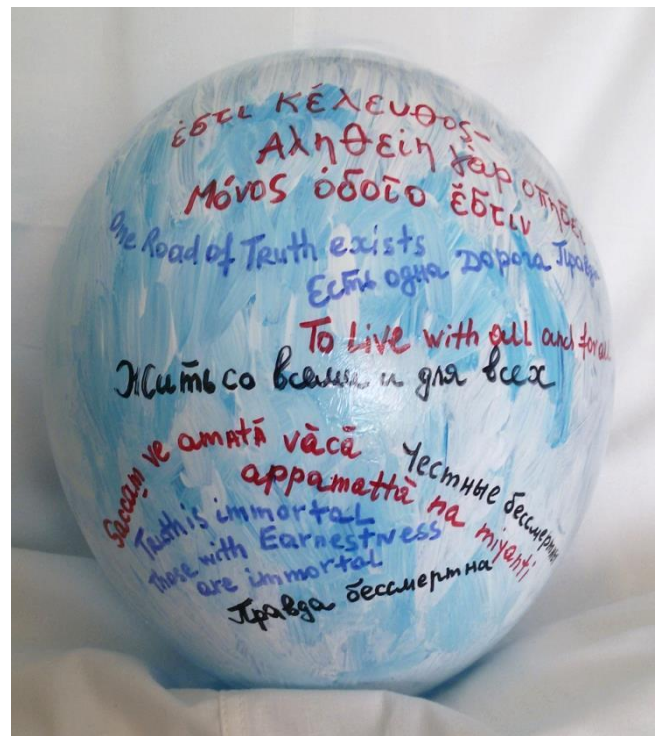 ἐστι κέλευθος-
Αληθείη γὰρ οπηδεῖ
Μόνος ὁδοῖο ἔστιν
One Road of Truth exists
Есть одна дорога Правды
To Live with all and for all
Жить со всеми и для всех
Saccaṃ ve amatā vācā
appamattā na miyanti
Честные бессмертны
Truth is immortal
Those with Earnestness
are immortal
Правда бессмертна